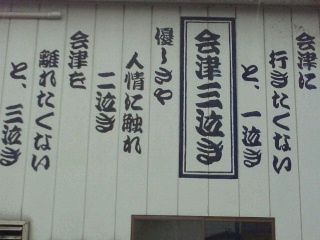 会津三泣き
会津に
行きたくない
と、一泣き
優しさや
人情に触れ
二泣き
会津を
離れたくない
と、三泣き